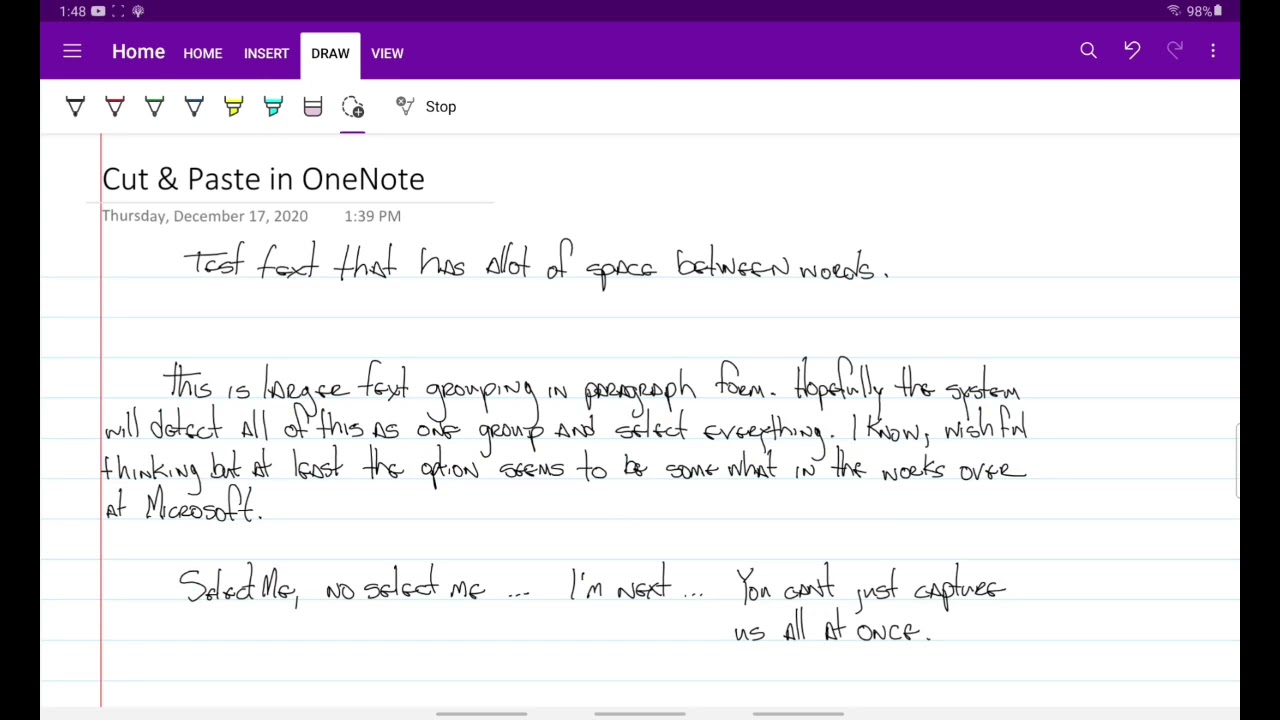 1:48 98%
Home HOME INSERT DRAW VIEW
Stop
Cut & Paste in OneNote
Thursday, December 17, 2020 1:39 PM
Test text that has allot of space between words.
This is larger text grouping in paragraph form. Hopefully the system
will detect all of this as one group and select everything. I know, wishful
thinking but at least the option seems to be somewhat in the works over
at Microsoft.
Select Me, no select me ... I'm next ... You can't just capture
us all at once.